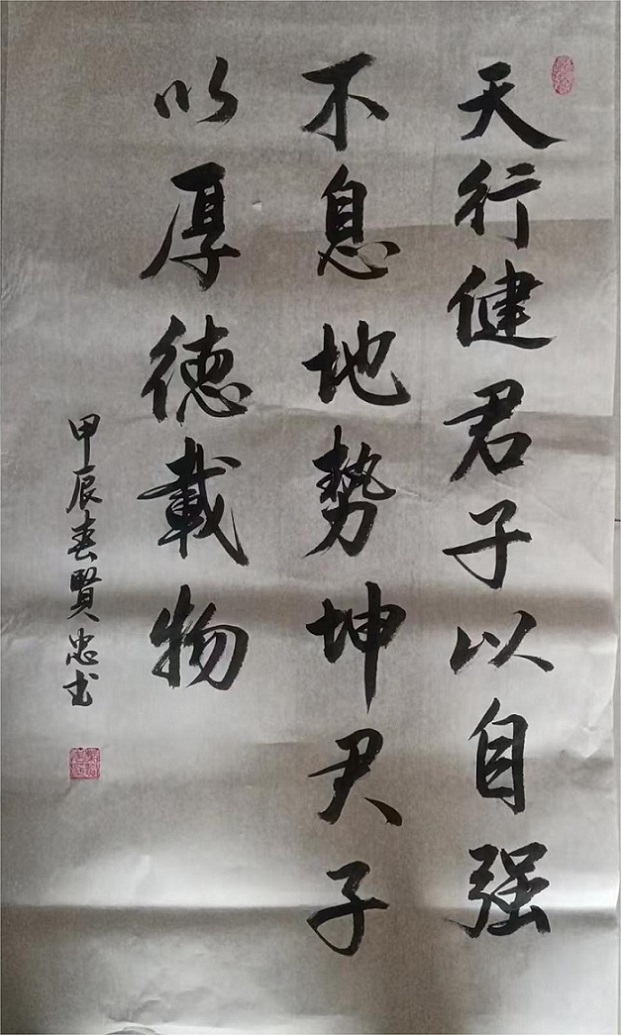 天行健君子以自强
不息地勢坤君子
以厚德載物
甲辰春賢忠书